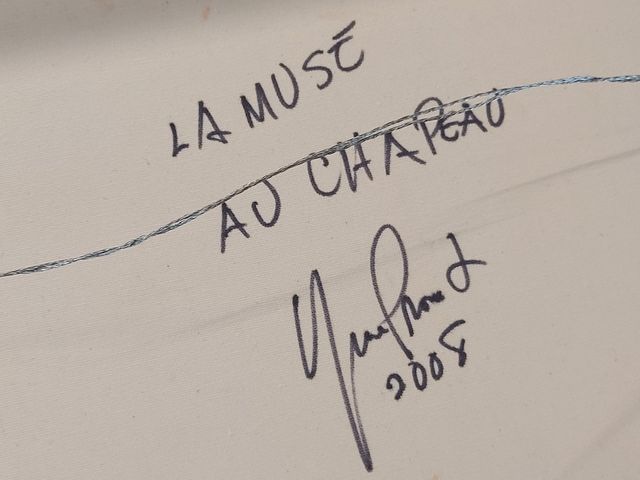 LA MUSÉ
AU CHAPEAU
2008